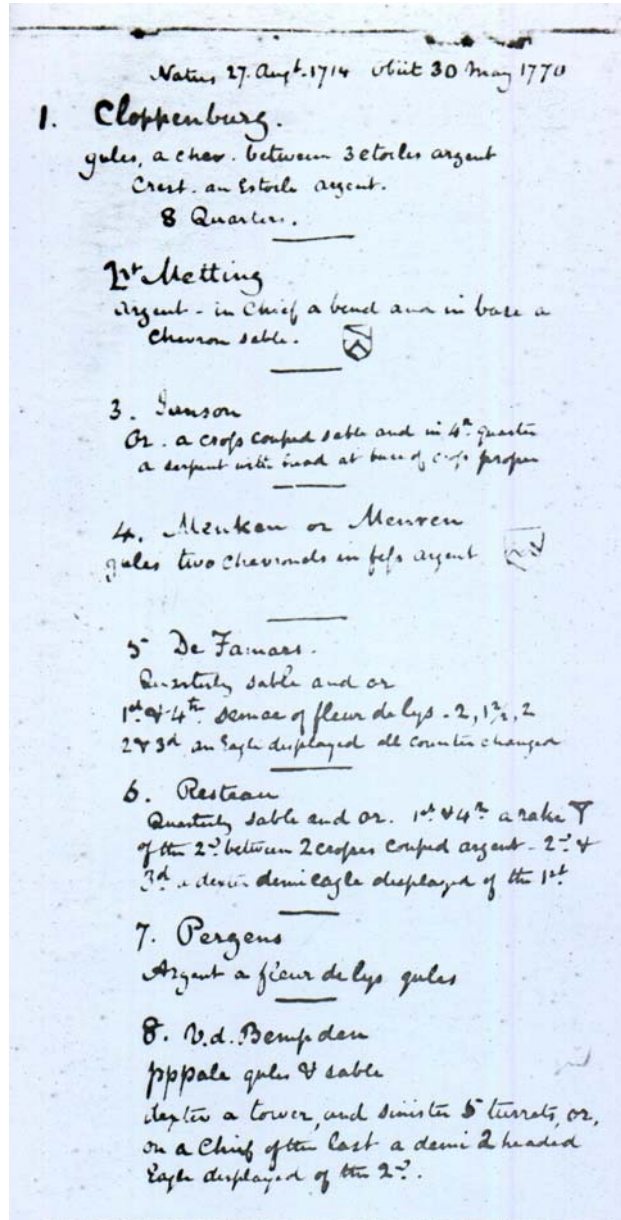 Natus 27. Augt. 1714 obiit 30 May 1770
1. Cloppenburg.
gules, a chev. between 3 etoiles argent
Crest. an Estoile argent.
8 Quarters.
Metting
Argent - in Chief a bend and in base a
Chevron sable.
3. Janson
Or. a cross couped sable and in 4th quarter
a serpent with head at base of cross proper
4. Menken or Menren
gules two chevronds in fess argent
5 De Famars.
Quarterly sable and or
1st & 4th semae of fleur de lys - 2, 1½, 2
2 & 3d an Eagle displayed all counterchanged
6. Resteau
Quarterly sable and or. 1st & 4th a rake
of the 2d between 2 crosses couped argent - 2d &
3d a dexter demi eagle displayed of the 1st
7. Pergens
Argent a fleur de lys gules
8. V.d. Bempden
pppale gules & sable
dexter a tower, and sinister 5 turrets, or,
on a Chief of the last a demi 2 headed
Eagle displayed of the 2d.